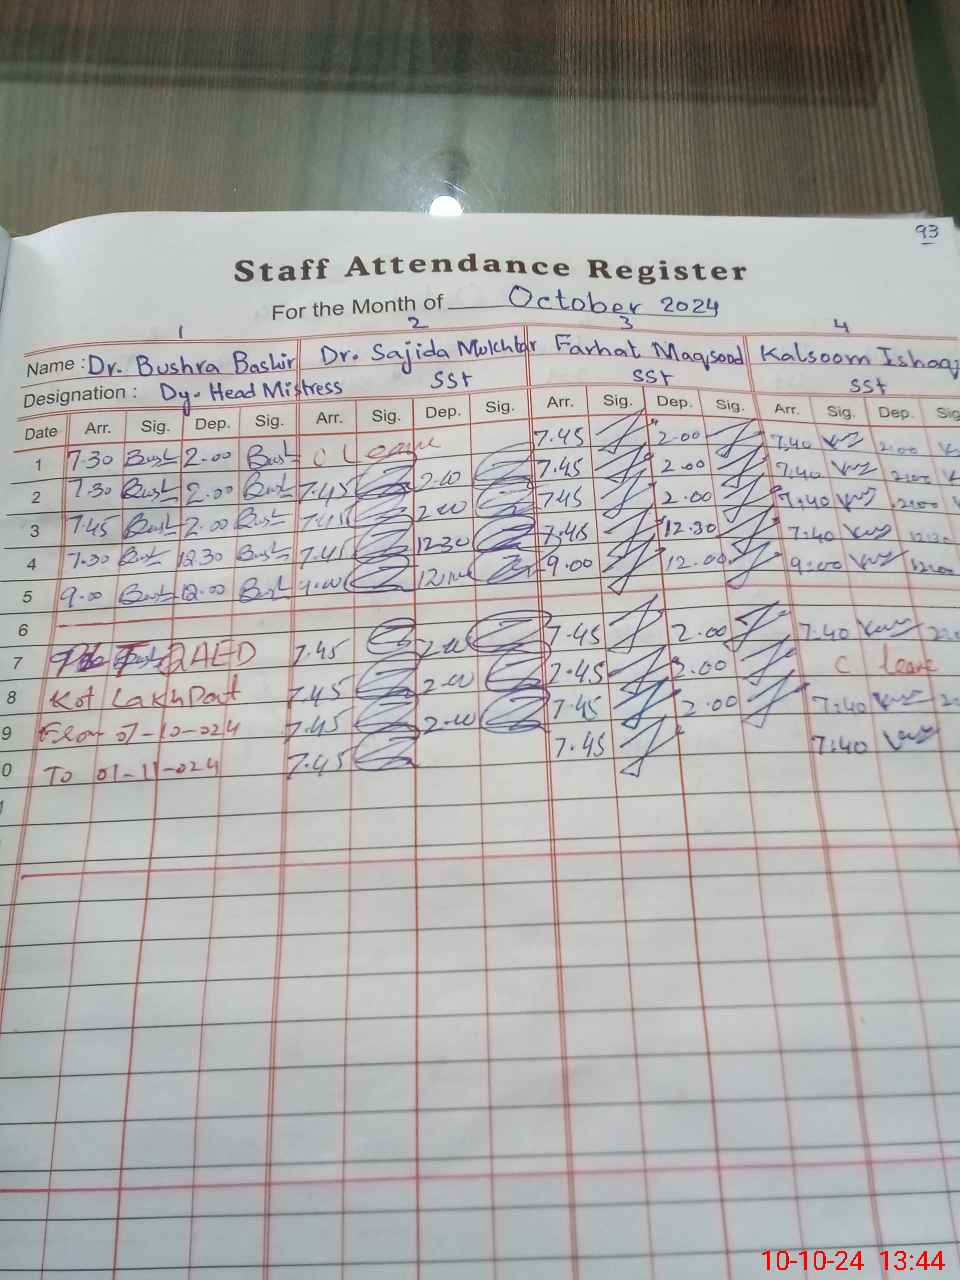 93
Staff Attendance Register
For the Month of October 2024
1 2 3 4
Name : Dr. Bushra Bashir Dr. Sajida Mukhtar Farhat Maqsood Kalsoom Ishaq
Designation : Dy. Head Mistress SST SST SST
Date Arr. Sig. Dep. Sig. Arr. Sig. Dep. Sig. Arr. Sig. Dep. Sig. Arr. Sig. Dep. Sig
1 7.30 2.00 C Leave 7.45 2.00 7.40 2.00
2 7.30 2.00 7.45 2.00 7.45 2.00 7.40 2.00
3 7.45 2.00 7.45 2.00 7.45 2.00 7.40 2.00
4 7.30 12.30 7.45 12.30 7.45 12.30 7.40 12.30
5 9.00 12.00 9.00 12.00 9.00 12.00 9.00 12.00
6
7 QAED 7.45 2.00 7.45 2.00 7.40
8 Kot LakhPat 7.45 2.00 7.45 2.00 C. leave
9 From 07-10-024 7.45 2.00 7.45 2.00 7.40
0 To 01-11-024 7.45 7.45 7.40
10-10-24 13:44